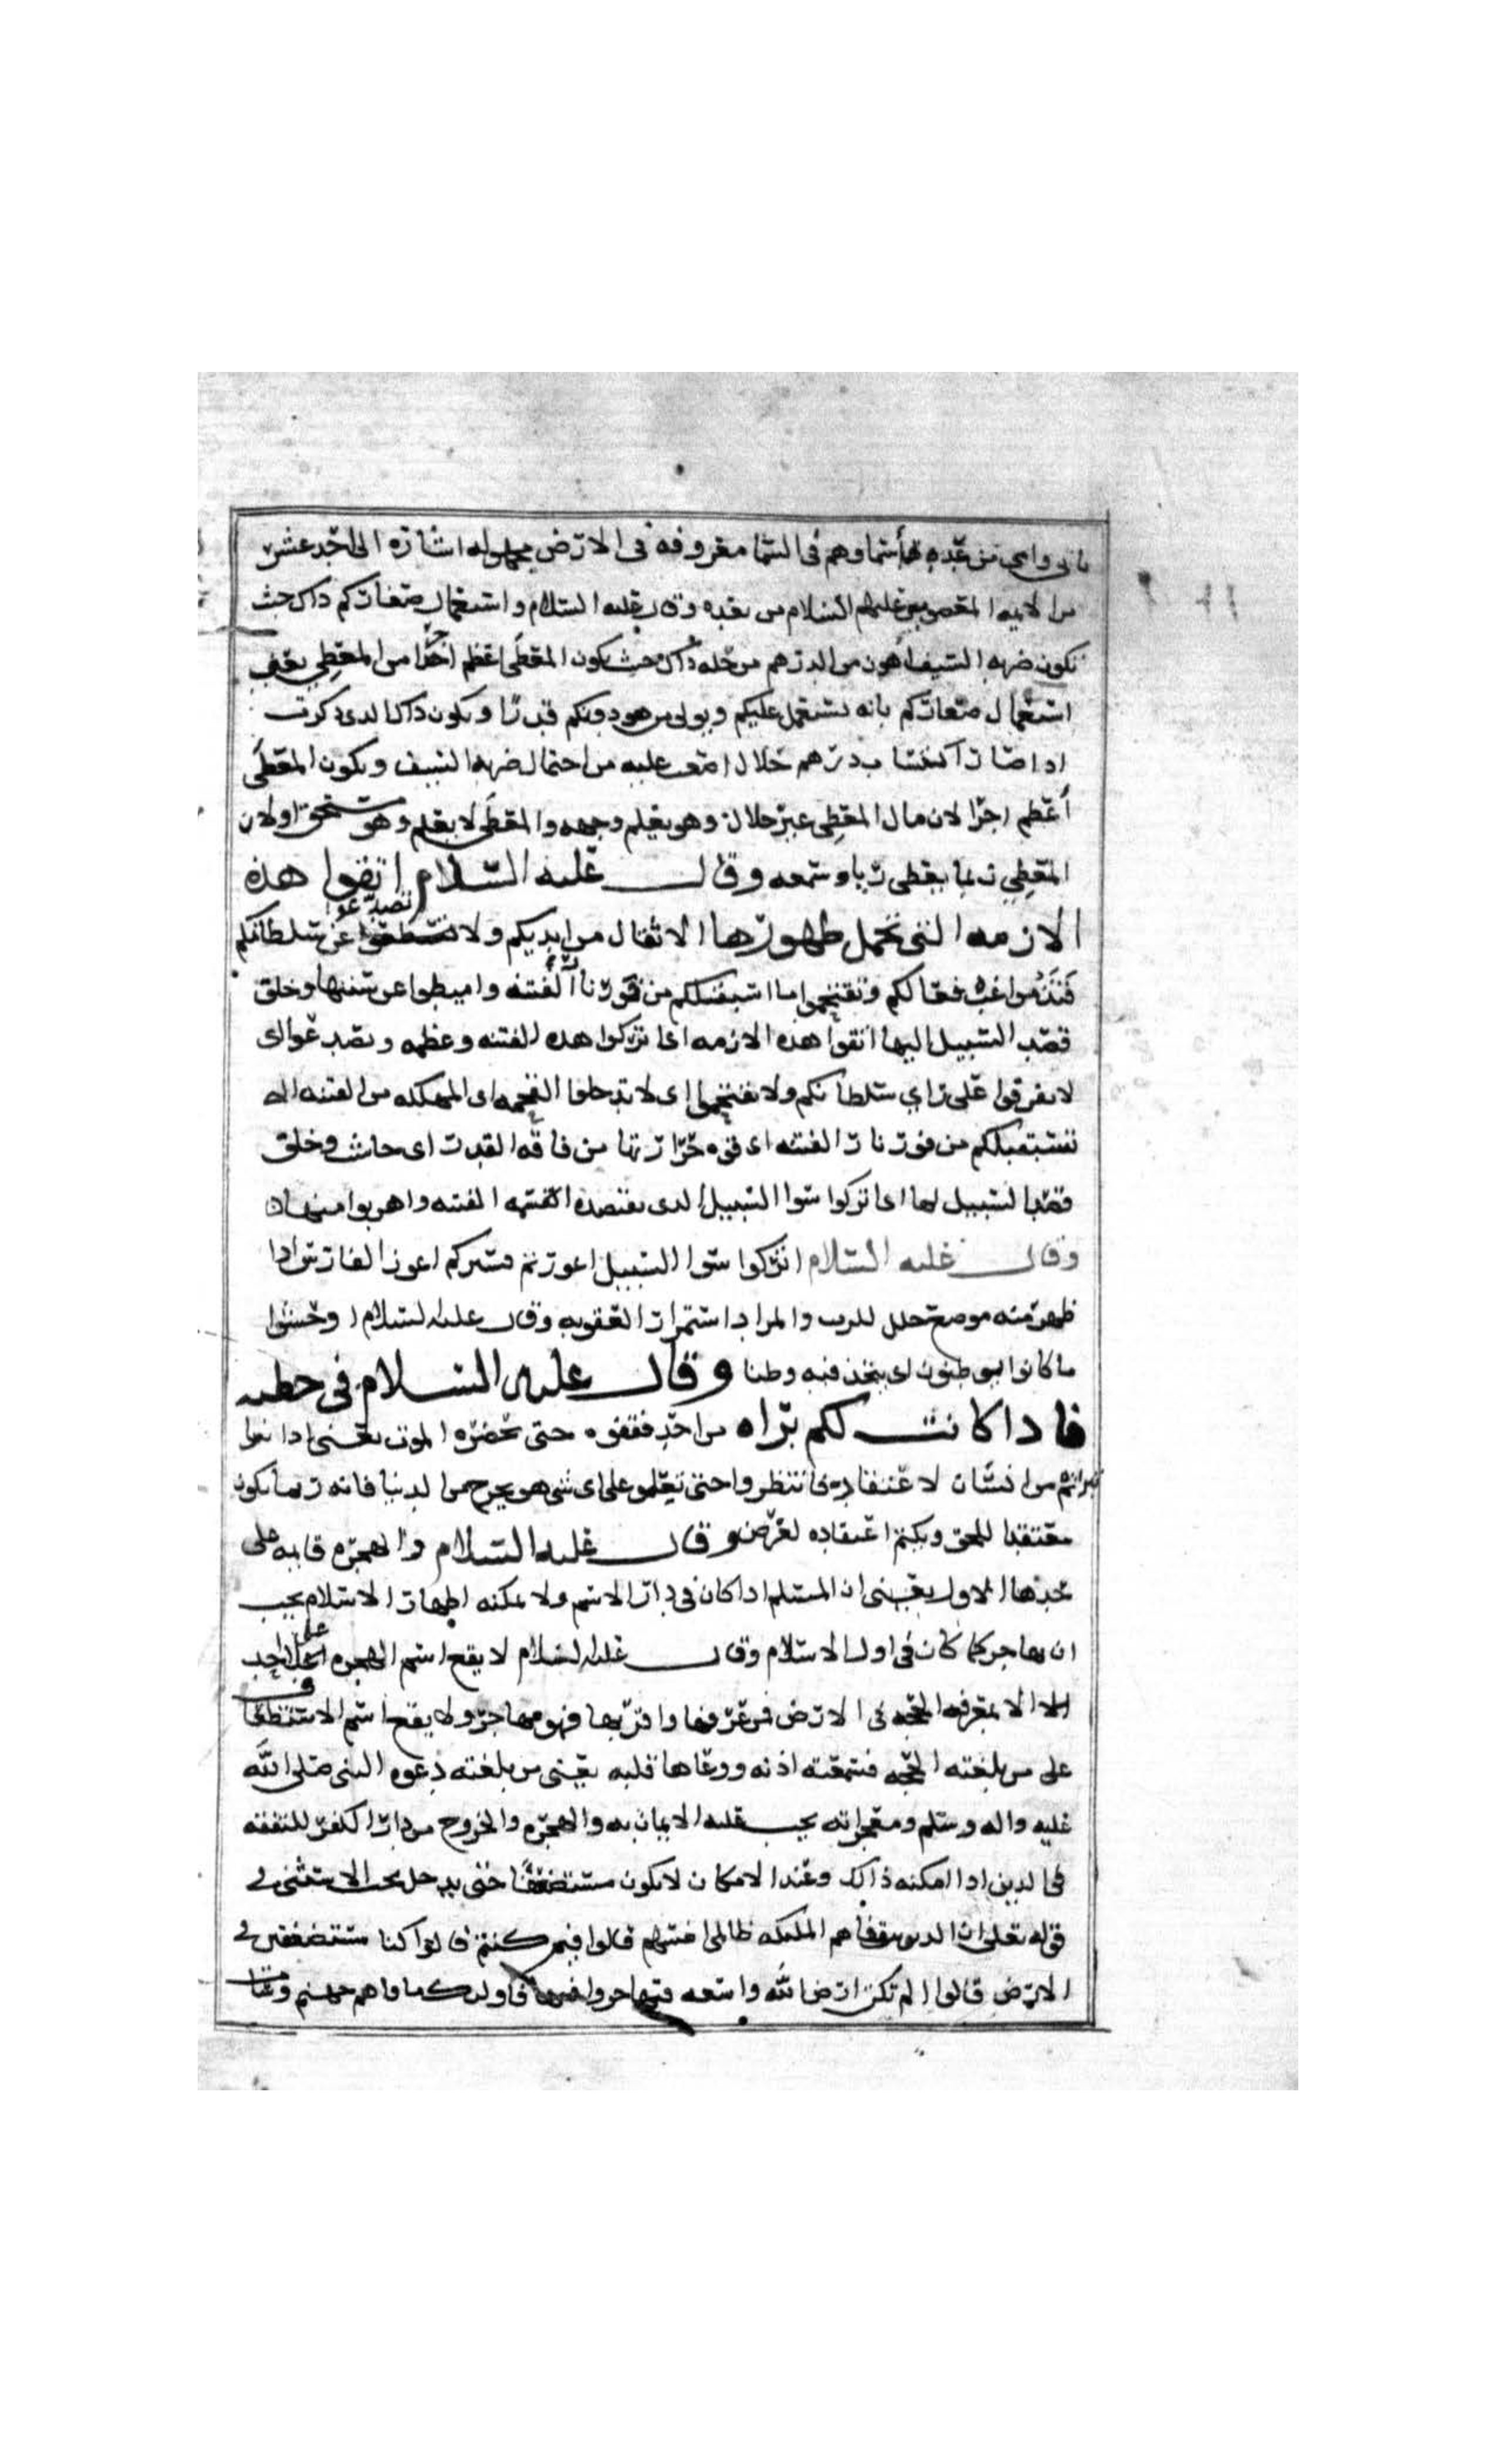 بابي وامي من عده اسماوهم في السما معروفه في الارض مجهوله اشاره الى احد عشر
من الايمه المعصومين عليهم السلام من بعده وقال عليه السلام واستعمال صغاركم ذاك حيث
تكون ضربه السيف اهون من الدرهم من حله ذاك حيث يكون المعطَى اعظم اجرا من المعطِي يعني
استعمال صغاركم بانه يستعمل عليكم ويولى من هو دونكم قدرا ويكون ذاك الدى ذكرت
ادا صار اكتساب درهم حلال اصعب عليه من احتمال ضربه السيف ويكون المعطَى
أعظم اجرا لان مال المعطِي غير حلال وهو يعلم وجهه والمعطَى لا يعلم وهو مستحق اولان
المعطِي ربما يعطي ريا وسمعه وقال عليه السلام اتقوا هذه
الازمه التي تحمل ظهورها الاثقال من ايديكم ولا تصدعوا عن سلطانكم
فَتَذُموا غب فعالكم وتقتحموا ما استقبلكم من فور نار الفتنه واميطوا عن سننها وخلو
قصد السبيل اليها اتقوا هده الازمه اى اتركوا هده الفتنه وعظمه وتصدعوا اى
لا تفرقوا على راي سلطانكم ولا تقتحموا اى لا تدخلوا القحمه اى المهلكه من الفتنه الى
تستقبلكم من فور نار الفتنه اى قوه حرارتها من فاقه القدر اى جاش وخلو
قصد السبيل لها اى اتركوا سوا السبيل الدى يقتصده الفتنه واهربوا منها
وقال عليه السلام اتركوا سوا السبيل اعورتم مسركم اعور الفارس ادا
ظهر منه موضع خلل للضرب والمراد استمرار العقوبه وقال عليه السلام اوحشوا
ما كانوا يوطنون اى يتخذ فيه وطنا وقال عليه السلام في خطبه
فادا كانت لكم براه من احد فقفوه حتى تحضره الموت يعني ادا
تبراتم من انسان لاعتقاده فانتظروا حتى تعلموا على اى شي هو يخرج من الدنيا فانه ربما يكون
معتقدا للحق ويكتم اعتقاده لغرض وقال عليه السلام والهجره قايمه على
حدها الاول يعني ان المسلم ادا كان في دار الاسم ولا يمكنه اظهار الاسلام يجب
ان يهاجر كما كان في اول الاسلام وقال عليه السلام لا يقع اسم الهجره على احد
الا بمعرفه الحجه في الارض فمن عرفها واقر بها فهو مهاجر ولا يقع اسم الاستضعاف
على من بلغته الحجه فسمعته اذنه ووعاها قلبه يعني من بلغته دعوه النبي صلى الله
عليه واله وسلم ومعجزاته يجب عليه الايمان به والهجره والخروج من دار الكفر للتفقه
في الدين ادا امكنه ذالك وعند الامكان لا يكون مستضعفًا حتى يدخل تحت الاستثنى في
قوله تعلى ان الدين توفاهم الملىكه ظالمى انفسهم قالوا فيم كنتم قالوا كنا مستضعفين في
الارض قالوا الم تكن ارض الله واسعه فتهاجروا فيها فاولىك ماواهم جهنم